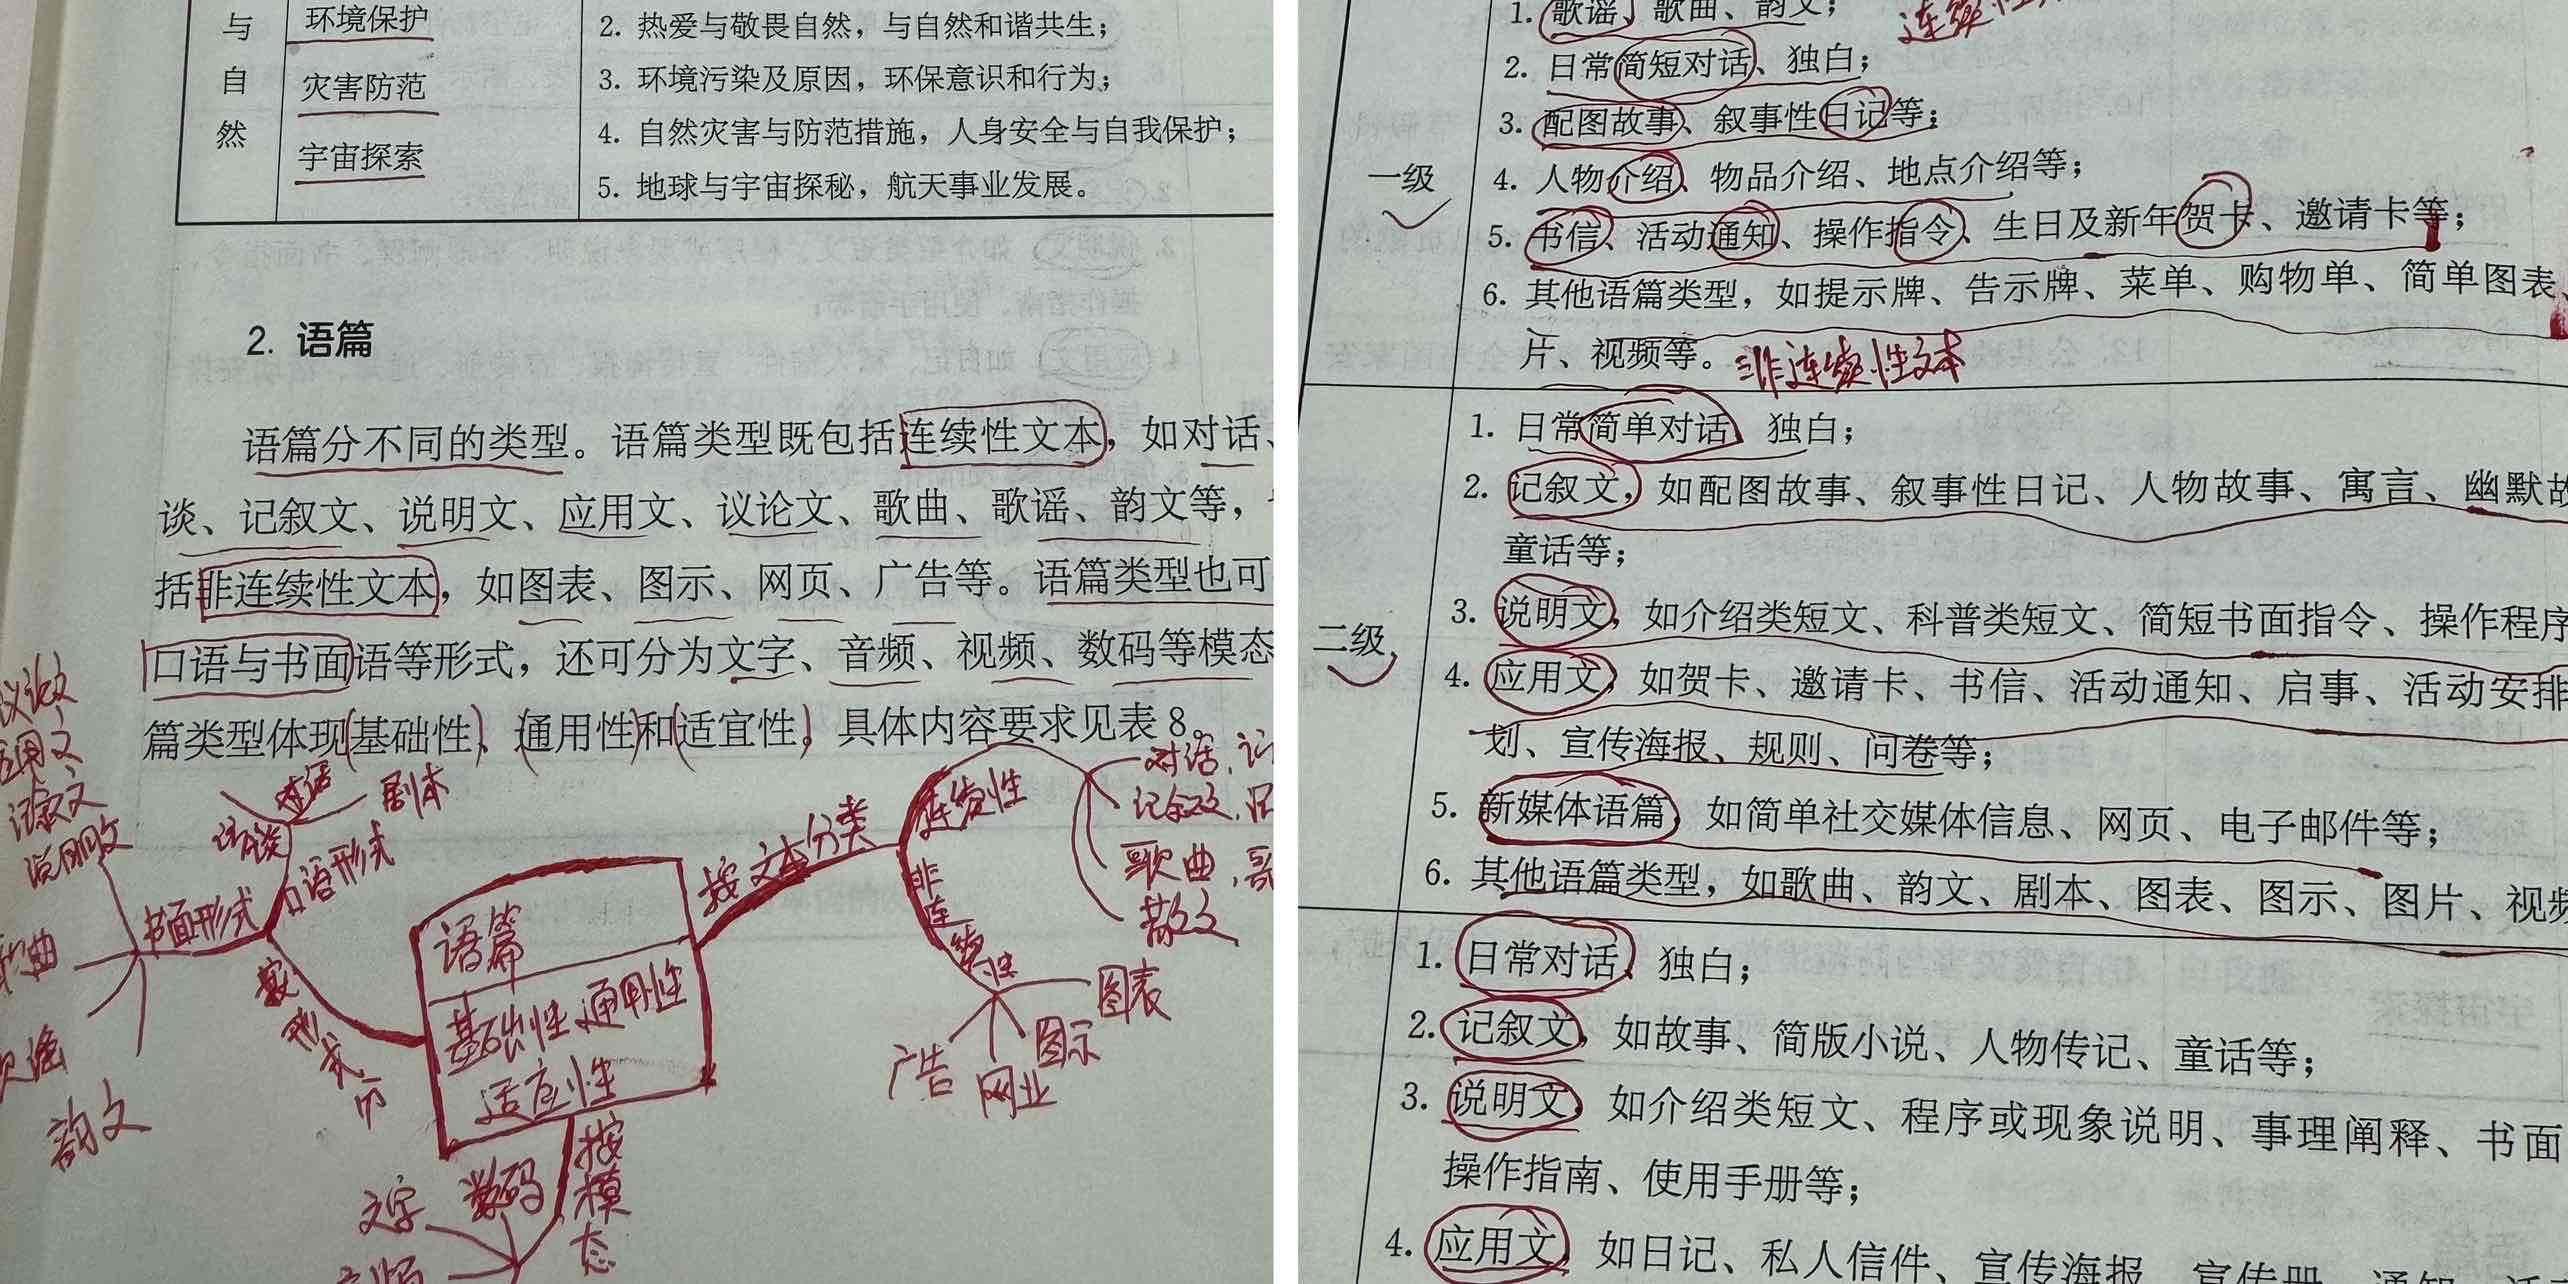 与
自
然
环境保护
灾害防范
宇宙探索
2. 热爱与敬畏自然，与自然和谐共生；
3. 环境污染及原因，环保意识和行为；
4. 自然灾害与防范措施，人身安全与自我保护；
5. 地球与宇宙探秘，航天事业发展。
2. 语篇
语篇分不同的类型。语篇类型既包括连续性文本，如对话、
谈、记叙文、说明文、应用文、议论文、歌曲、歌谣、韵文等，
括非连续性文本，如图表、图示、网页、广告等。语篇类型也可
口语与书面语等形式，还可分为文字、音频、视频、数码等模态
篇类型体现基础性、通用性和适宜性。具体内容要求见表 8。
议论文
应用文
记叙文
说明文
歌曲
歌谣
韵文
书面形式
对话
访谈
剧本
口语形式
按形式分
语篇
基础性 通用性
适应性
按文本分类
连续性
对话、访
记叙文、说
歌曲、歌
散文
非连续性
图表
图示
网业
广告
按模态
数码
文字
音频
1. 歌谣、歌曲、韵文；
2. 日常简短对话、独白；
3. 配图故事、叙事性日记等；
一级
4. 人物介绍、物品介绍、地点介绍等；
5. 书信、活动通知、操作指令、生日及新年贺卡、邀请卡等；
6. 其他语篇类型，如提示牌、告示牌、菜单、购物单、简单图表、
片、视频等。非连续性文本
1. 日常简单对话、独白；
2. 记叙文，如配图故事、叙事性日记、人物故事、寓言、幽默故
童话等；
3. 说明文，如介绍类短文、科普类短文、简短书面指令、操作程序
二级
4. 应用文，如贺卡、邀请卡、书信、活动通知、启事、活动安排
划、宣传海报、规则、问卷等；
5. 新媒体语篇，如简单社交媒体信息、网页、电子邮件等；
6. 其他语篇类型，如歌曲、韵文、剧本、图表、图示、图片、视频
1. 日常对话、独白；
2. 记叙文，如故事、简版小说、人物传记、童话等；
3. 说明文，如介绍类短文、程序或现象说明、事理阐释、书面
操作指南、使用手册等；
4. 应用文，如日记、私人信件、宣传海报、宣传册、通知、活